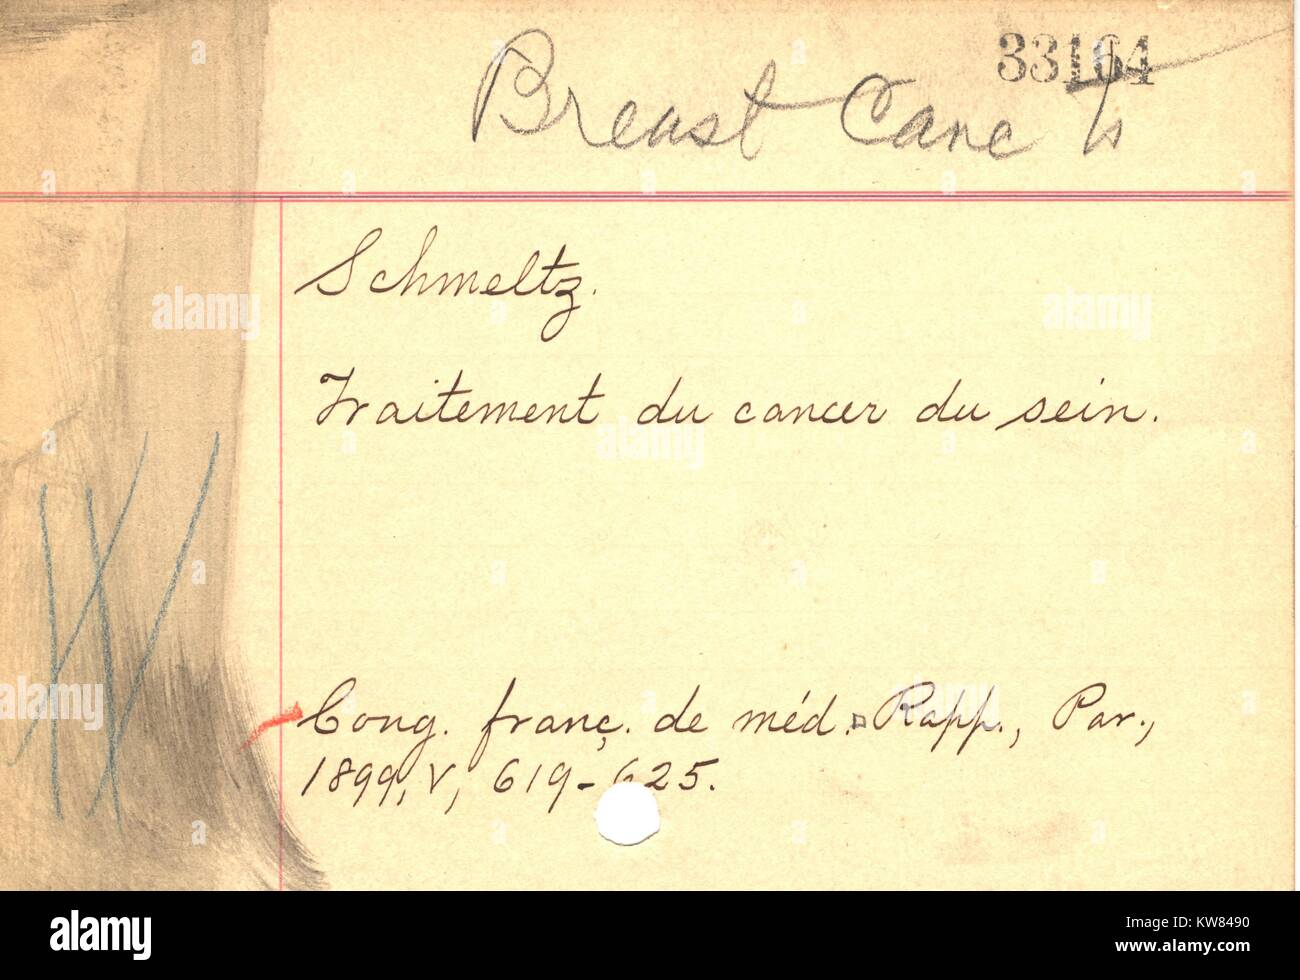 33164
Breast Canc
Schmeltz.
Traitement du cancer du sein.
Cong. franç. de méd. Rapp., Par.,
1899, v, 619-625.
alamy
Image ID: KW8490
www.alamy.com